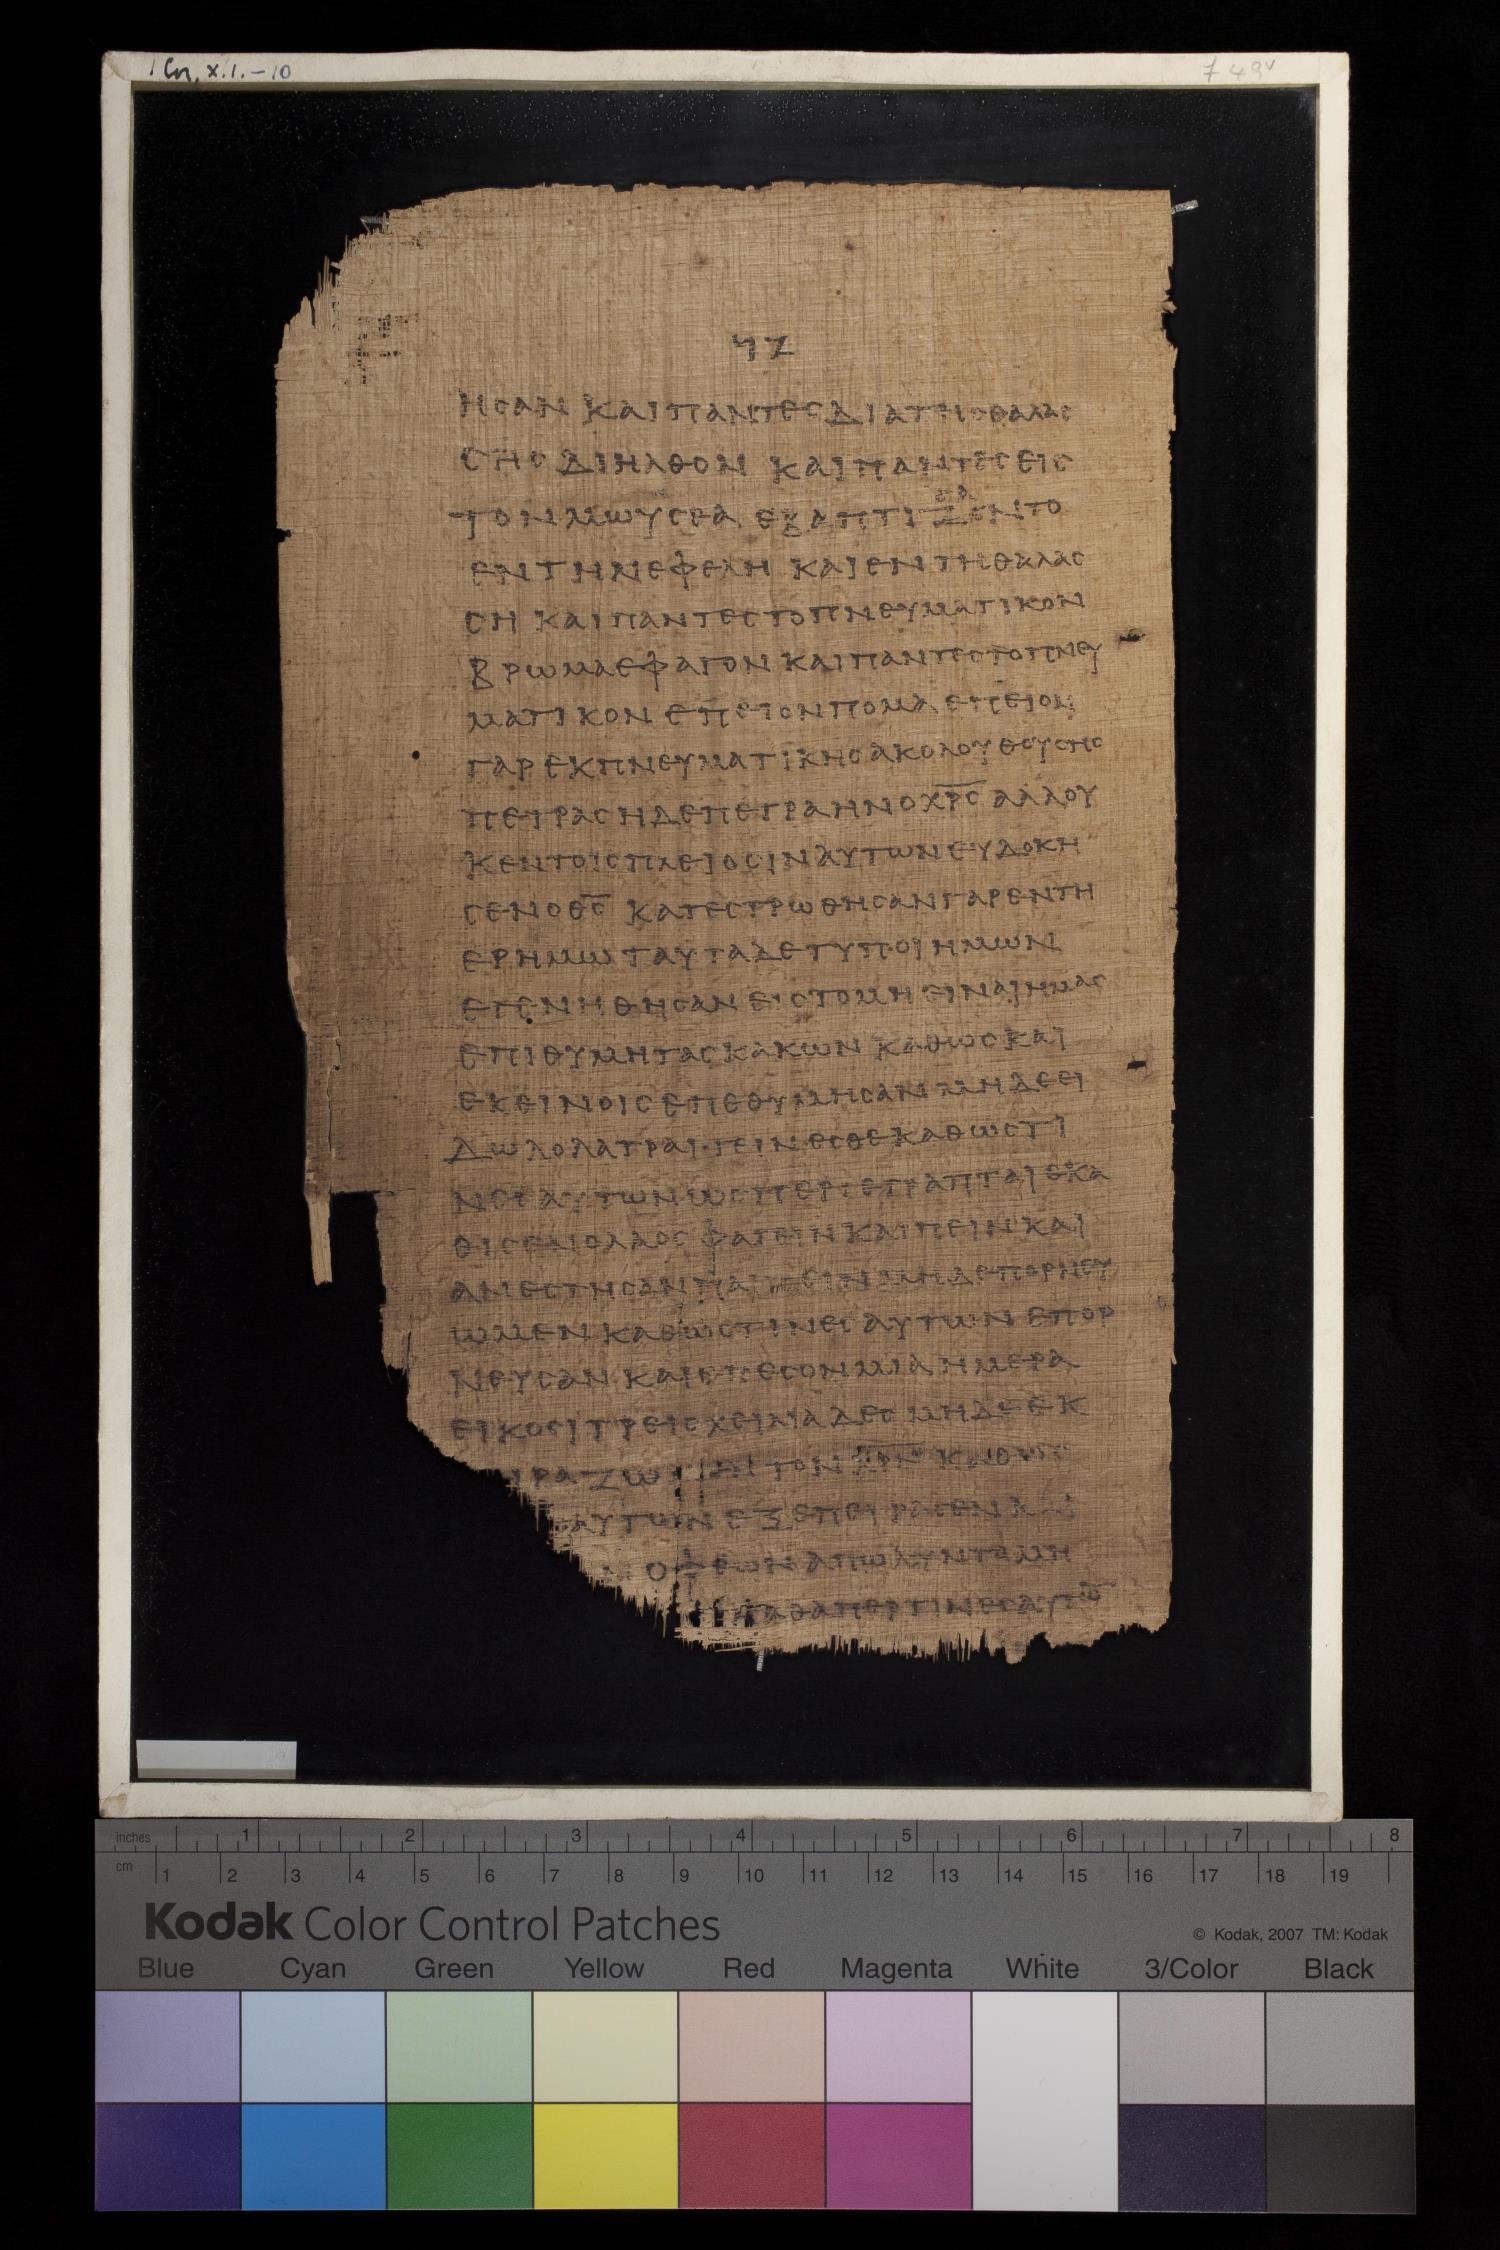 1 Cor. X. 1. – 10
f 49v
ϥΖ
ΗϹΑΝ ΚΑΙ ΠΑΝΤΕϹ ΔΙΑ ΤΗϹ ΘΑΛΑϹ
ϹΗϹ ΔΙΗΛΘΟΝ ΚΑΙ ΠΑΝΤΕϹ ΕΙϹ
ΤΟΝ ΜΩΥϹΕΑ ΕΒΑΠΤΙΖΟΝΤΟ
ΕΝ ΤΗ ΝΕΦΕΛΗ ΚΑΙ ΕΝ ΤΗ ΘΑΛΑϹ
ϹΗ ΚΑΙ ΠΑΝΤΕϹ ΤΟ ΠΝΕΥΜΑΤΙΚΟΝ
ΒΡΩΜΑ ΕΦΑΓΟΝ ΚΑΙ ΠΑΝΤΕϹ ΤΟ ΠΝΕΥ
ΜΑΤΙΚΟΝ ΕΠΕΙΟΝ ΠΟΜΑ ΕΠΕΙΟΝ
ΓΑΡ ΕΚ ΠΝΕΥΜΑΤΙΚΗϹ ΑΚΟΛΟΥΘΟΥϹΗϹ
ΠΕΤΡΑϹ Η ΔΕ ΠΕΤΡΑ ΗΝ Ο ΧΡ̅Ϲ̅ ΑΛΛ ΟΥ
Κ ΕΝ ΤΟΙϹ ΠΛΕΙΟϹΙΝ ΑΥΤΩΝ ΕΥΔΟΚΗ
ϹΕΝ Ο Θ̅Ϲ̅ ΚΑΤΕϹΤΡΩΘΗϹΑΝ ΓΑΡ ΕΝ ΤΗ
ΕΡΗΜΩ ΤΑΥΤΑ ΔΕ ΤΥΠΟΙ ΗΜΩΝ
ΕΓΕΝΗΘΗϹΑΝ ΕΙϹ ΤΟ ΜΗ ΕΙΝΑΙ ΗΜΑϹ
ΕΠΙΘΥΜΗΤΑϹ ΚΑΚΩΝ ΚΑΘΩϹ ΚΑΙ
ΕΚΕΙΝΟΙϹ ΕΠΕΘΥΜΗϹΑΝ ΜΗΔΕ ΕΙ
ΔΩΛΟΛΑΤΡΑΙ ΓΕΙΝΕϹΘΕ ΚΑΘΩϹ ΤΙ
ΝΕϹ ΑΥΤΩΝ ΩϹΠΕΡ ΓΕΓΡΑΠΤΑΙ ΕΚΑ
ΘΙϹΕΝ Ο ΛΑΟϹ ΦΑΓΕΙΝ ΚΑΙ ΠΕΙΝ ΚΑΙ
ΑΝΕϹΤΗϹΑΝ ΠΑΙΖΕΙΝ ΜΗΔΕ ΠΟΡΝΕΥ
ΩΜΕΝ ΚΑΘΩϹ ΤΙΝΕϹ ΑΥΤΩΝ ΕΠΟΡ
ΝΕΥϹΑΝ ΚΑΙ ΕΠΕϹΟΝ ΜΙΑ ΗΜΕΡΑ
ΕΙΚΟϹΙ ΤΡΕΙϹ ΧΕΙΛΙΑΔΕϹ ΜΗΔΕ ΕΚ
ΙΡΑΖΩΜΕΝ ΤΟΝ ΧΡ̅Ν̅ ΚΑΘΩϹ
ΑΥΤΩΝ ΕΞΕΠΕΙΡΑϹΕΝ ΚΑΙ
ΟΦΕΩΝ ΑΠΩΛΥΝΤΟ ΜΗ
ΚΑΘΑΠΕΡ ΤΙΝΕϹ ΑΥΤΩ̅
inches 1 2 3 4 5 6 7 8
cm 1 2 3 4 5 6 7 8 9 10 11 12 13 14 15 16 17 18 19
Kodak Color Control Patches © Kodak, 2007 TM: Kodak
Blue Cyan Green Yellow Red Magenta White 3/Color Black